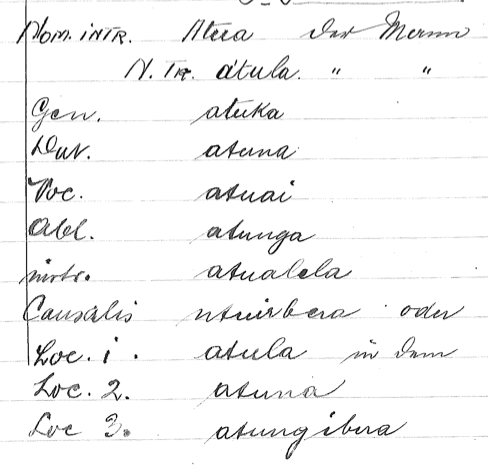 Nom. INTR. Atua der Mann
N. TR. átula. " "
Gen. atuka
Dat. atuna
Voc. atuai
Abl. atunga
instr. atualela
Causalis atuibera oder
Loc. 1. atula in dem
Loc. 2. atuna
Loc 3. atungibera